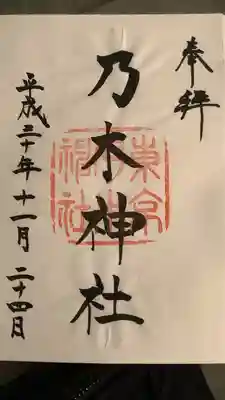 奉拝
乃木神社
平成三十年十一月二十四日